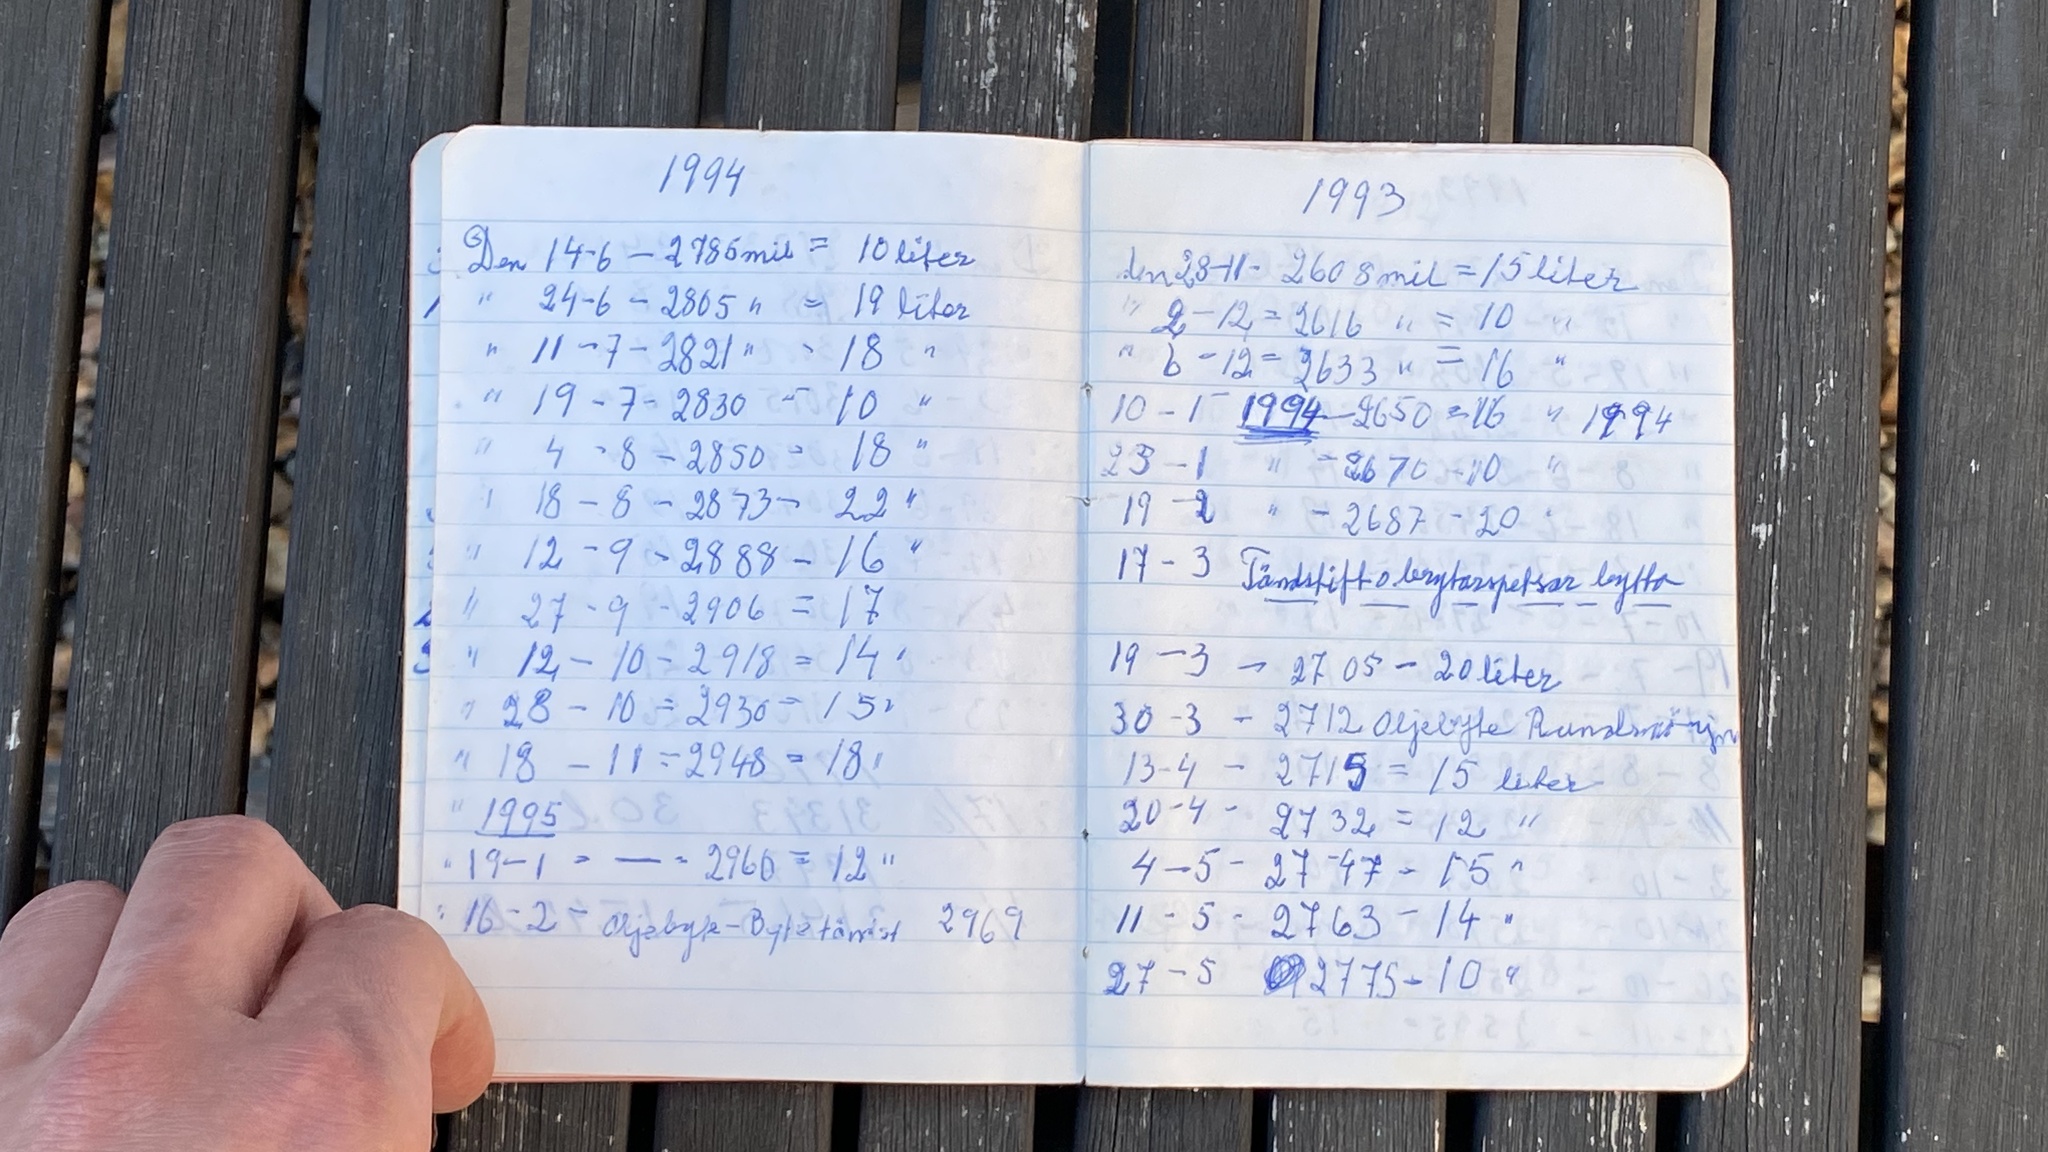 1994
Den 14-6 - 2785 mil = 10 liter
" 24-6 - 2805 " = 19 liter
" 11-7 - 2821 " - 18 "
" 19-7 - 2830 - 10 "
" 4-8 - 2850 - 18 "
" 18-8 - 2873 - 22 "
" 12-9 - 2888 - 16 "
" 27-9 - 2906 = 17
" 12-10 - 2918 = 14 "
" 28-10 = 2930 = 15 "
" 18-11 = 2948 = 18 "
" 1995
" 19-1 - — - 2960 = 12 "
" 16-2 - Oljebyte - Byte tändst 2969
1993
den 28-11 - 2608 mil = 15 liter
" 2-12 = 2616 " = 10 "
" 6-12 = 2633 " = 16 "
10-1 - 1994 - 2650 = 16 " 1994
23-1 " - 2670 - 10 "
19-2 " - 2687 - 20
17-3 Tändstift o brytarspetsar bytta
19-3 - 2705 - 20 liter
30-3 - 2712 Oljebyte Rundsmörjn
13-4 - 2715 = 15 liter
20-4 - 2732 = 12 "
4-5 - 2747 - 15 "
11-5 - 2763 - 14 "
27-5 2775 - 10 "